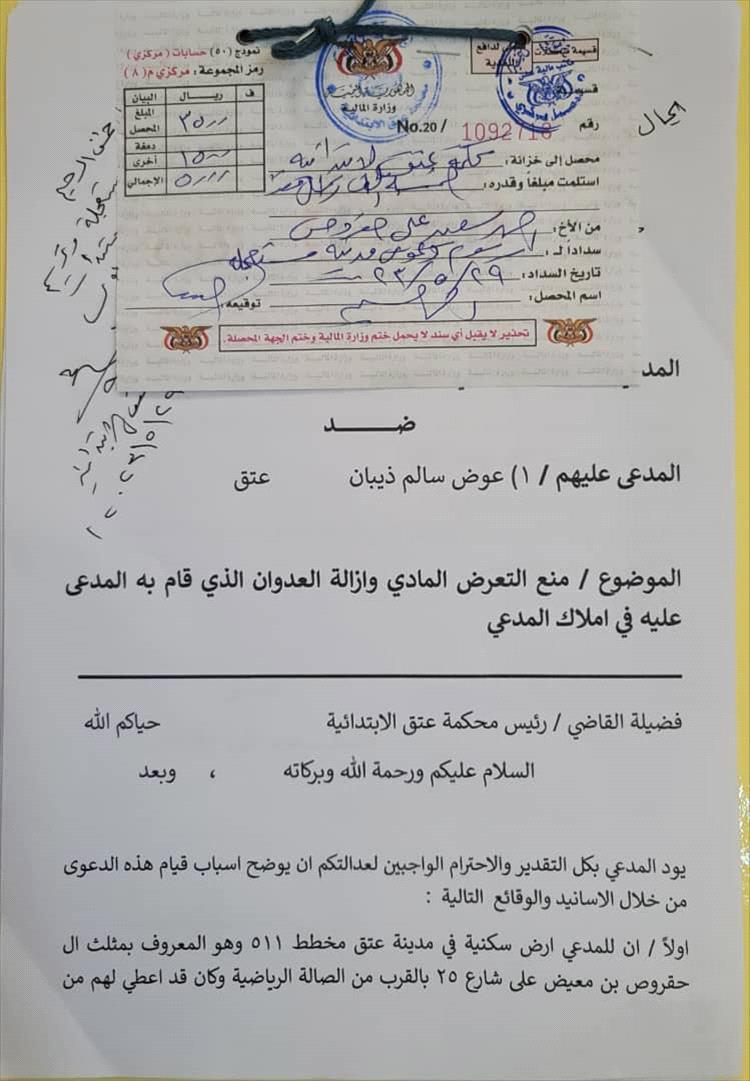 نموذج (٥٠) حسابات ( مركزي )
رمز المجموعة: مركزي م( ٨ )
البيان ريال ف
المبلغ المحصل ٣٥٠٠
دمغة
أخرى ١٥٠٠
الإجمالي ٥٠٠٠
وزارة المالية
رقم No.20/
محصل إلى خزانة: محكمة عتق الابتدائية
استلمت مبلغاً وقدره:
من الأخ: سعيد علي حقروص
سداداً لـ: رسوم دعوى مدنية مستعجلة
تاريخ السداد: ٢٣/٥/٢٩
اسم المحصل: توقيعه:
تحذير لا يقبل أي سند لا يحمل ختم وزارة المالية وختم الجهة المحصلة.
ضـــــد
المدعى عليهم / ١) عوض سالم ذيبان عتق
الموضوع / منع التعرض المادي وازالة العدوان الذي قام به المدعى
عليه في املاك المدعي
فضيلة القاضي / رئيس محكمة عتق الابتدائية حياكم الله
السلام عليكم ورحمة الله وبركاته ، وبعد
يود المدعي بكل التقدير والاحترام الواجبين لعدالتكم ان يوضح اسباب قيام هذه الدعوى
من خلال الاسانيد والوقائع التالية :
اولاً / ان للمدعي ارض سكنية في مدينة عتق مخطط ٥١١ وهو المعروف بمثلث ال
حقروص بن معيض على شارع ٢٥ بالقرب من الصالة الرياضية وكان قد اعطي لهم من